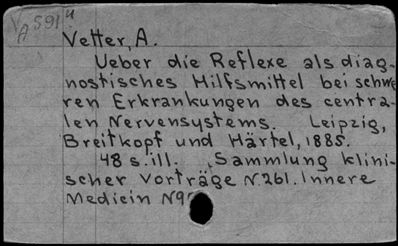 VA 5914
Vetter, A.
Ueber die Reflexe als diag-
nostisches Hilfsmittel bei schwe
ren Erkrankungen des centra-
len Nervensystems. Leipzig,
Breitkopf und Härtel, 1885.
48 s. ill. Sammlung klini-
scher Vorträge N. 261. Innere
Medicin N9